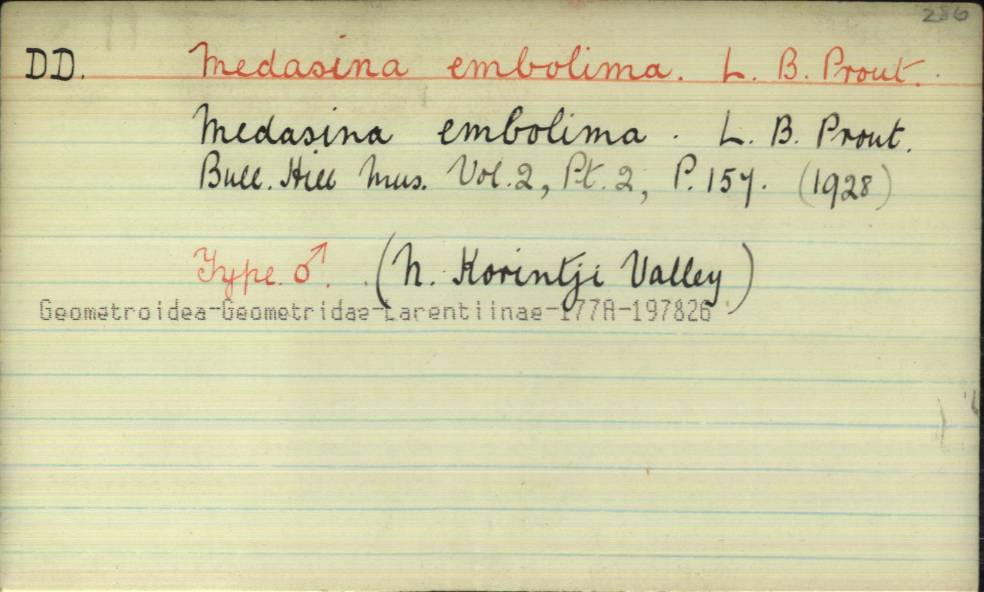 286
DD. Medasina embolima. L. B. Prout.
Medasina embolima. L. B. Prout.
Bull. Hill Mus. Vol. 2, Pt. 2, P. 157. (1928)
Type ♂. (N. Korintji Valley)
Geometroidea-Geometridae-Larentiinae-177A-197826